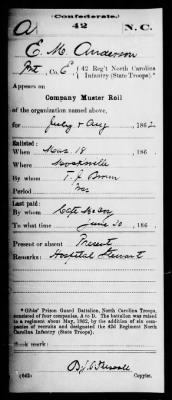 (Confederate.)
A 42 N.C.
E. M. Anderson
Pvt, Co. E, 42 Reg't North Carolina
Infantry (State Troops).*
Appears on
Company Muster Roll
of the organization named above,
for July & Aug, 1862
Enlisted:
When 18, 186
Where Mocksville
By whom T. J. Brown
Period War
Last paid:
By whom Capt
To what time June 30, 186
Present or absent Present
Remarks: Hospital Steward
*Gibbs' Prison Guard Battalion, North Carolina Troops,
consisted of four companies, A to D. The battalion was raised
to a regiment about May, 1862, by the addition of six com-
panies of recruits and designated the 42d Regiment North
Carolina Infantry (State Troops).
Book mark:
(642)
Copyist.